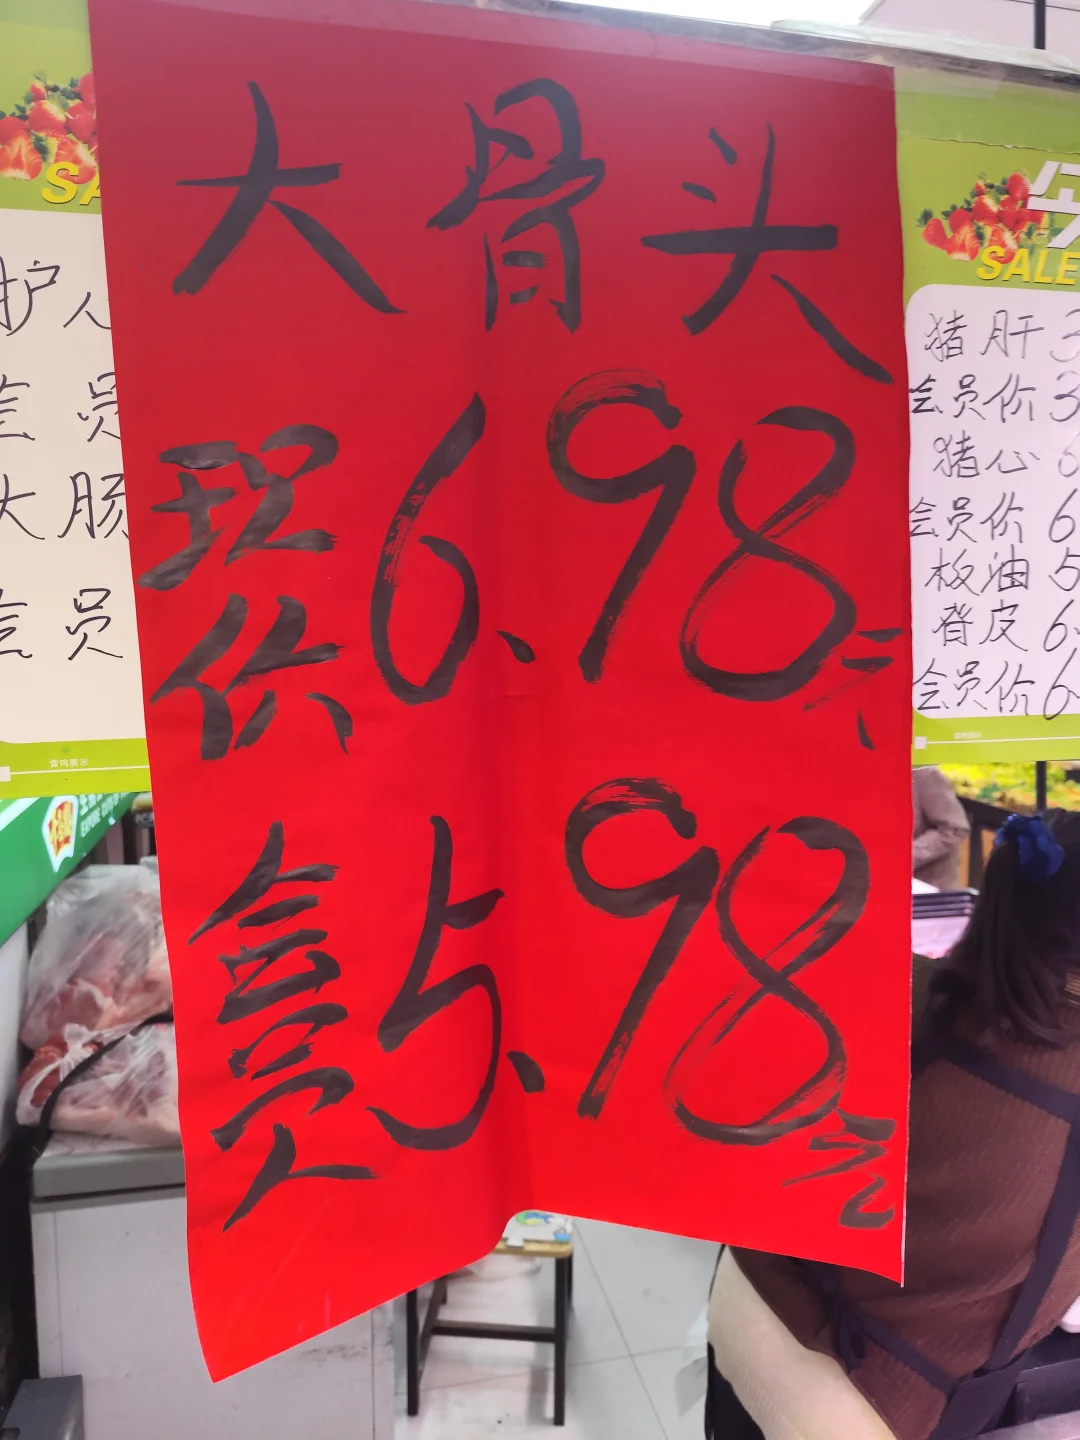 大骨头
现价6.98元
会员5.98元
SA
护心
会员
大肠
会员
雷鸣展示
SALE
猪肝3
会员价3
猪心6
会员价6
板油5
脊皮6.
会员价6.
雷鸣展示